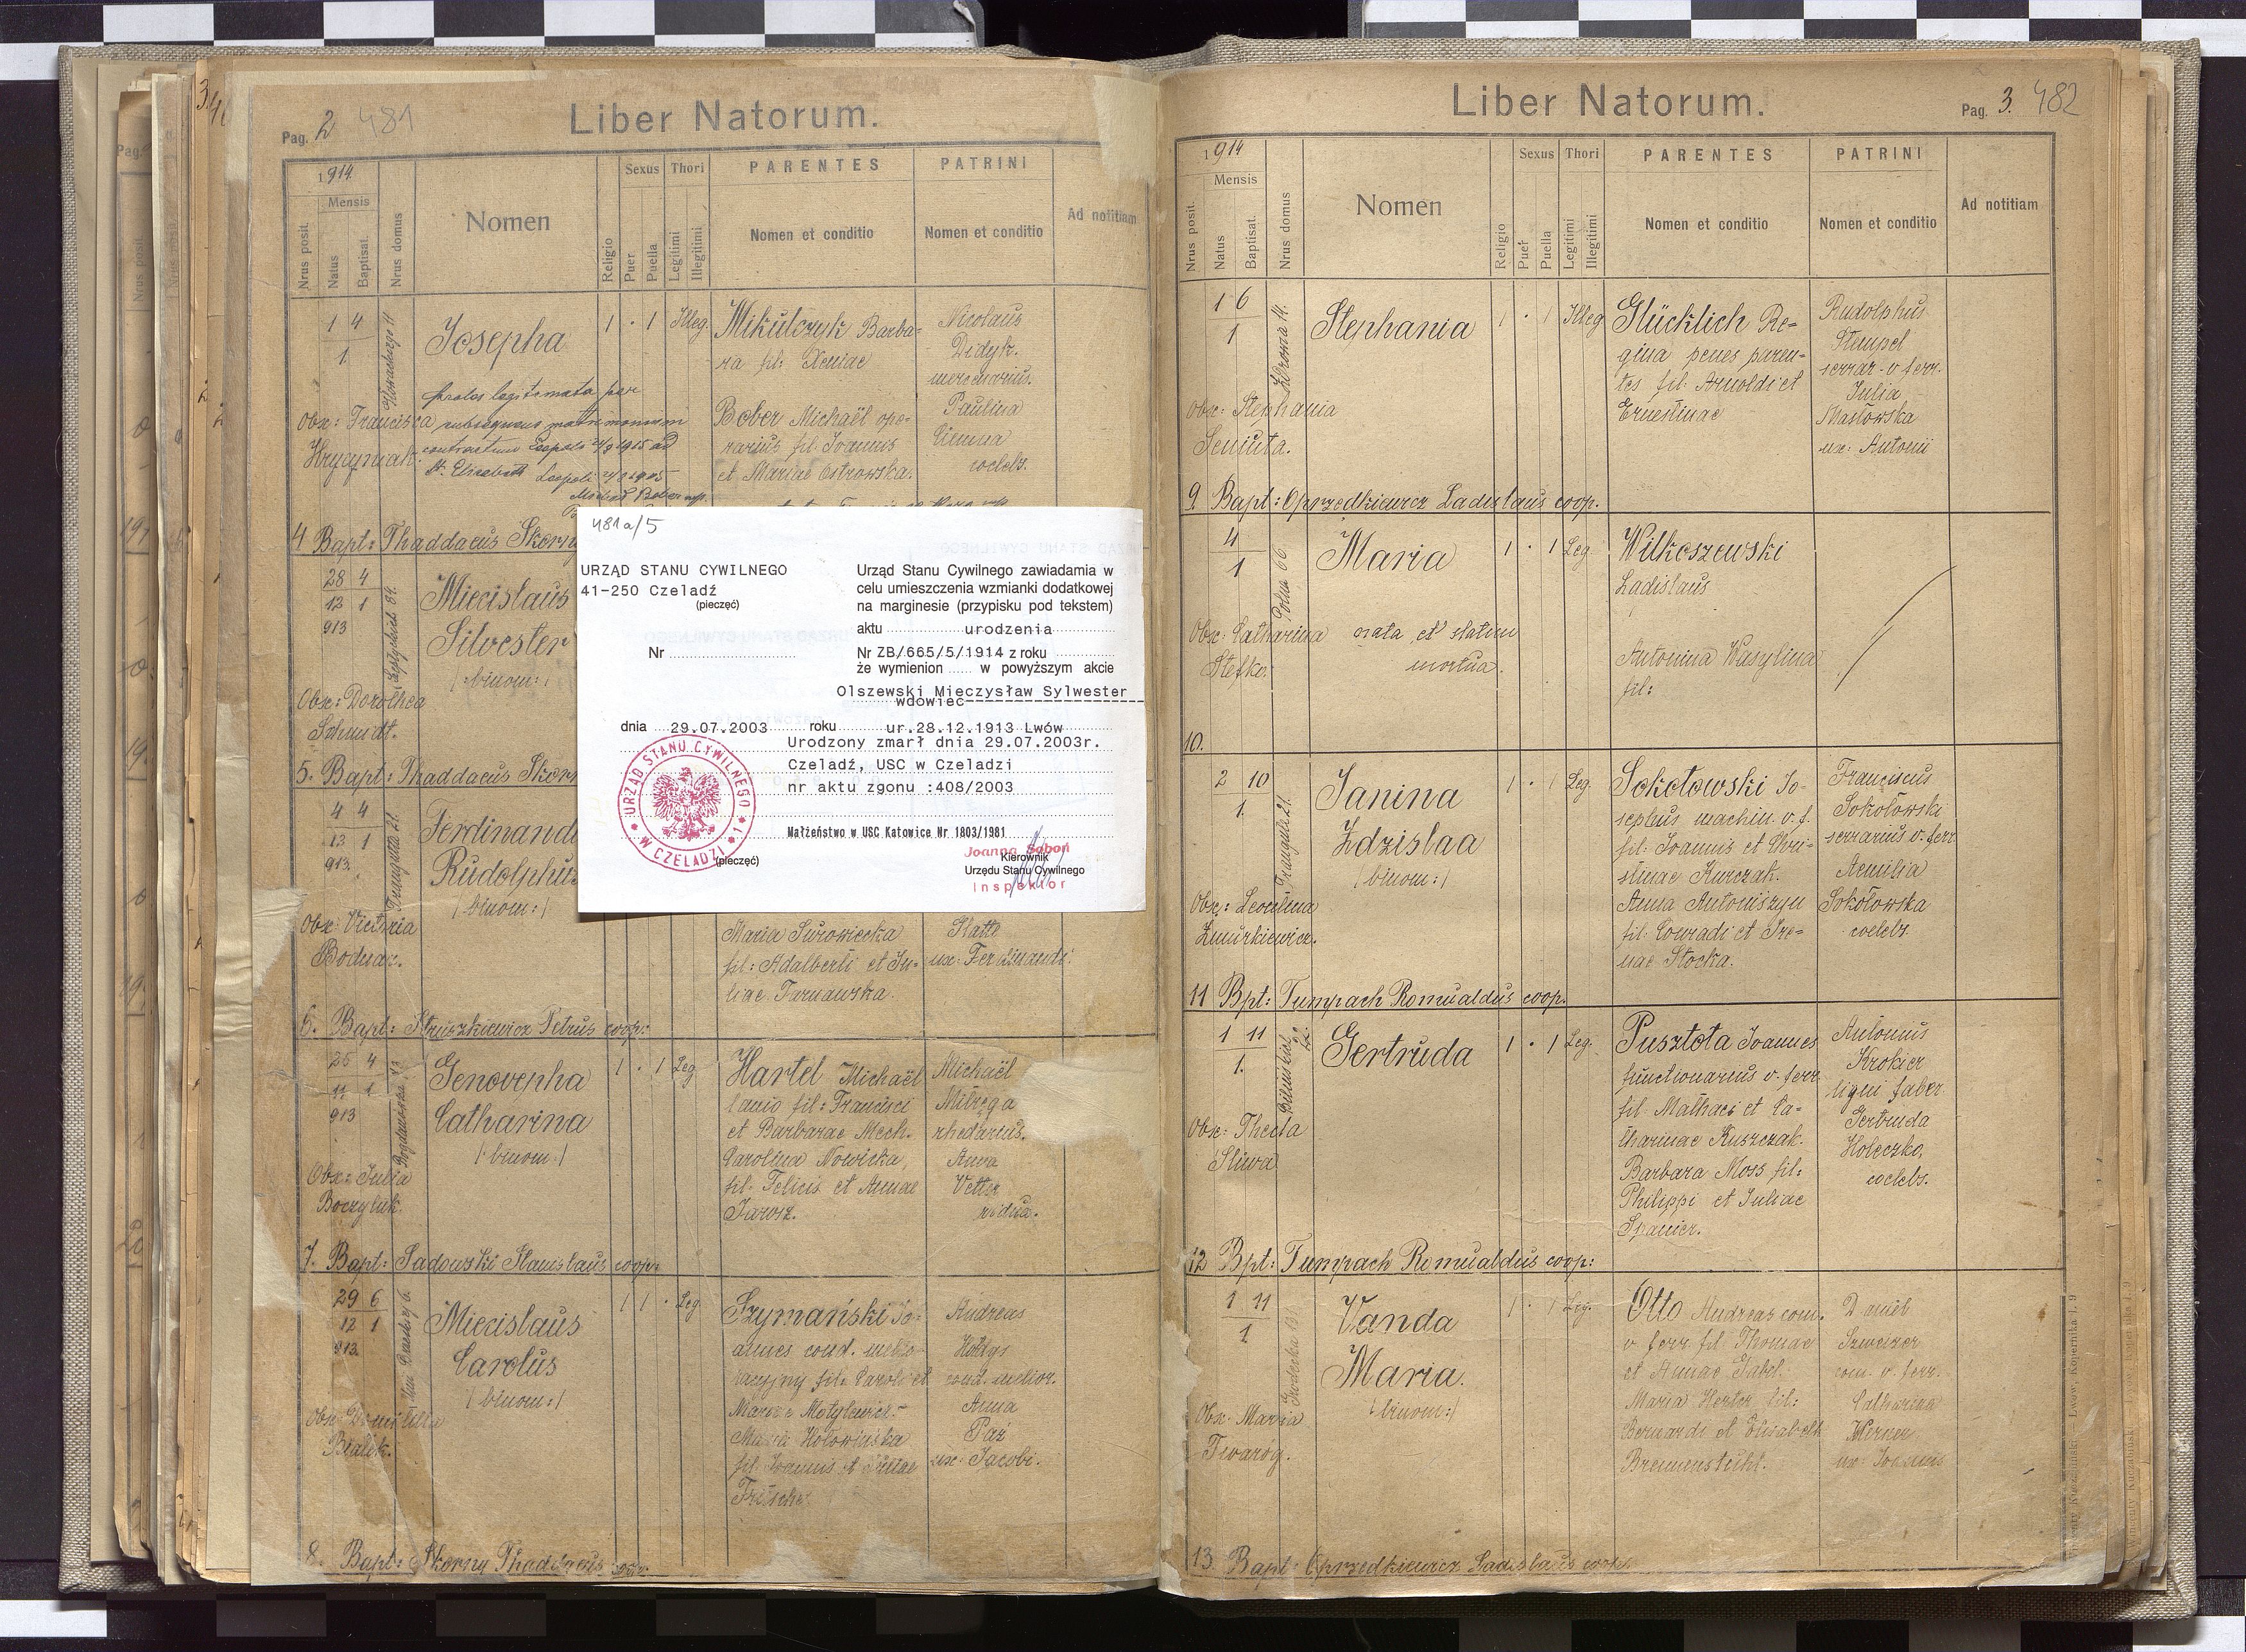 Pag. 2 481
Liber Natorum.
1914.
Mensis
Nrus posit.
Natus
Baptisat.
Nrus domus
Nomen
Religio
Sexus
Puer
Puella
Thori
Legitimi
Illegitimi
PARENTES
Nomen et conditio
PATRINI
Nomen et conditio
Ad notitiam
1 4
1
Josepha
1 · 1 Illeg.
Mikulczyk Barba-
ra fil: Xeniae
Bober Michaël ope-
rarius fil Joannis
et Mariae Ostrowska.
Nicolaus
Didyk.
mercenarius.
Paulina
coelebs.
proles legitimata per
subsequens matrimonium
Obx: Francisca
Hrycyniak.
4 Bapt: Thaddaeus Skorn
28 4
12 1
913
Miecislaus
Silvester
(:binom:)
Obx: Dorothea
Schmidt.
5. Bapt: Thaddaeus Skorn
4 4
12 1
913.
Ferdinand
Rudolphus
(binom:)
Obx: Victoria
Bodnar.
Maria Surowiecka
fil: Adalberti et Ju-
liae Tarnawska.
Hatte
ux: Ferdinandi
6. Bapt: Struszkiewicz Petrus coop:
25 4
11 1
913
Bogdanówka
Genovepha
Catharina
(binom:)
1 · 1 Leg
Hartel Michaël
lanio fil: Francisci
et Barbarae Mech.
Carolina Nowicka,
fil. Felicis et Annae
Jarosz.
Michaël
Milręga
rhedarius.
Anna
Vetter
vidua.
Obx: Julia
Boczyluk.
7. Bapt: Sadowski Stanislaus coop:
29 6
12 1
913
Miecislaus
Carolus
(binom:)
1 1 · Leg
Szymański Jo-
annes cond. melio-
racyjny fil: Caroli et
Maria Hołowińska
fil. Joannis et Juliae
Fritsche
Andreas
Hołdys
cond. melior.
Anna
Páz
ux: Jacobi.
Obx: Domicilia
Bialik.
8. Bapt: Skorny Thaddaeus coop:
481a/5
URZĄD STANU CYWILNEGO
41-250 Czeladź
(pieczęć)
Nr
Urząd Stanu Cywilnego zawiadamia w
celu umieszczenia wzmianki dodatkowej
na marginesie (przypisku pod tekstem)
aktu urodzenia
Nr ZB/665/5/1914 z roku
że wymienion ...... w powyższym akcie
Olszewski Mieczysław Sylwester
wdowiec
dnia 29.07.2003 roku ur.28.12.1913 Lwów
Urodzony zmarł dnia 29.07.2003r.
Czeladź, USC w Czeladzi
nr aktu zgonu :408/2003
Małżeństwo w USC Katowice Nr 1803/1981
URZĄD STANU CYWILNEGO * 1 * W CZELADZI *
(pieczęć)
Joanna Soboń
Kierownik
Urzędu Stanu Cywilnego
Inspektor
Liber Natorum.
Pag. 3. 482
1914
Mensis
Nrus posit.
Natus
Baptisat.
Nrus domus
Nomen
Religio
Sexus
Puer
Puella
Thori
Legitimi
Illegitimi
PARENTES
Nomen et conditio
PATRINI
Nomen et conditio
Ad notitiam
1 6
1
Stephania
1 · 1 Illeg
Glücklich Re-
gina penes paren-
tes fil. Arnoldi et
Ernestinae
Rudolphus
Stempel
serrar. v. ferr.
Julia
Masłowska
ux: Antonii
Obx: Stephania
Seniuta.
9 Bapt: Oprzedkiewicz Ladislaus coop.
4
1
Polna 66
Maria
1 · 1 Leg
Wilkoszewski
Ladislaus
Antonina Wasylina
fil:
Obx: Catharina
Stefko.
nata et statim
mortua.
10.
2 10
1
Traugutta 21.
Janina
Zdzislaa
(binom:)
1 · 1 Leg.
Sokołowski Jo-
sephus machin. v. f.
fil. Joannis et Chri-
stinae Kurczak.
Anna Antoniszyn
fil. Conradi et Ire-
nae Stocka.
Franciscus
Sokołowski
serrarius v. ferr
Aemilia
Sokołowska
coelebs
Obx: Leontina
Zmurkiewicz.
11 Bpt: Tumpach Romualdus coop.
1 11
1.
Gertruda
1 · 1 Leg.
Pusztoła Joannes
functionarius v. ferr.
fil. Mathaei et Ca-
tharinae Kuszczak.
Barbara Moss fil:
Philippi et Juliae
Spanier.
Antonius
Krokier
ligni faber
Gertruda
Holeczko,
coelebs.
Obx: Thecla
Sliwa
12 Bpt: Tumpach Romualdus coop:
1 11
1
Vanda
Maria.
(binom:)
1 · 1 Leg.
Otto Andreas com.
v ferr fil. Thomae
et Annae Gabel.
Maria Herter fil:
Bernardi et Elisabeth
Bremenstuhl.
Daniel
Szweizer
com. v. ferr.
Catharina
Werner
ux: Joannis
Obx: Maria
Twaróg.
13 Bapt: Oprzedkiewicz Ladislaus coop.